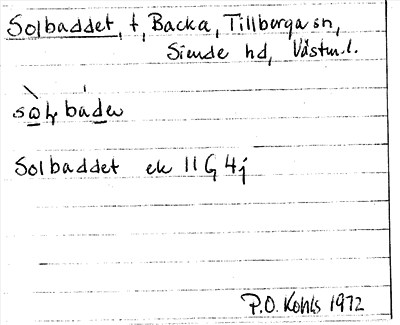 Solbaddet, t, Backa, Tillberga sn,
Siende hd, Västm. l.
Solbaddet ek 11G 4j
P.O. Kohls 1972